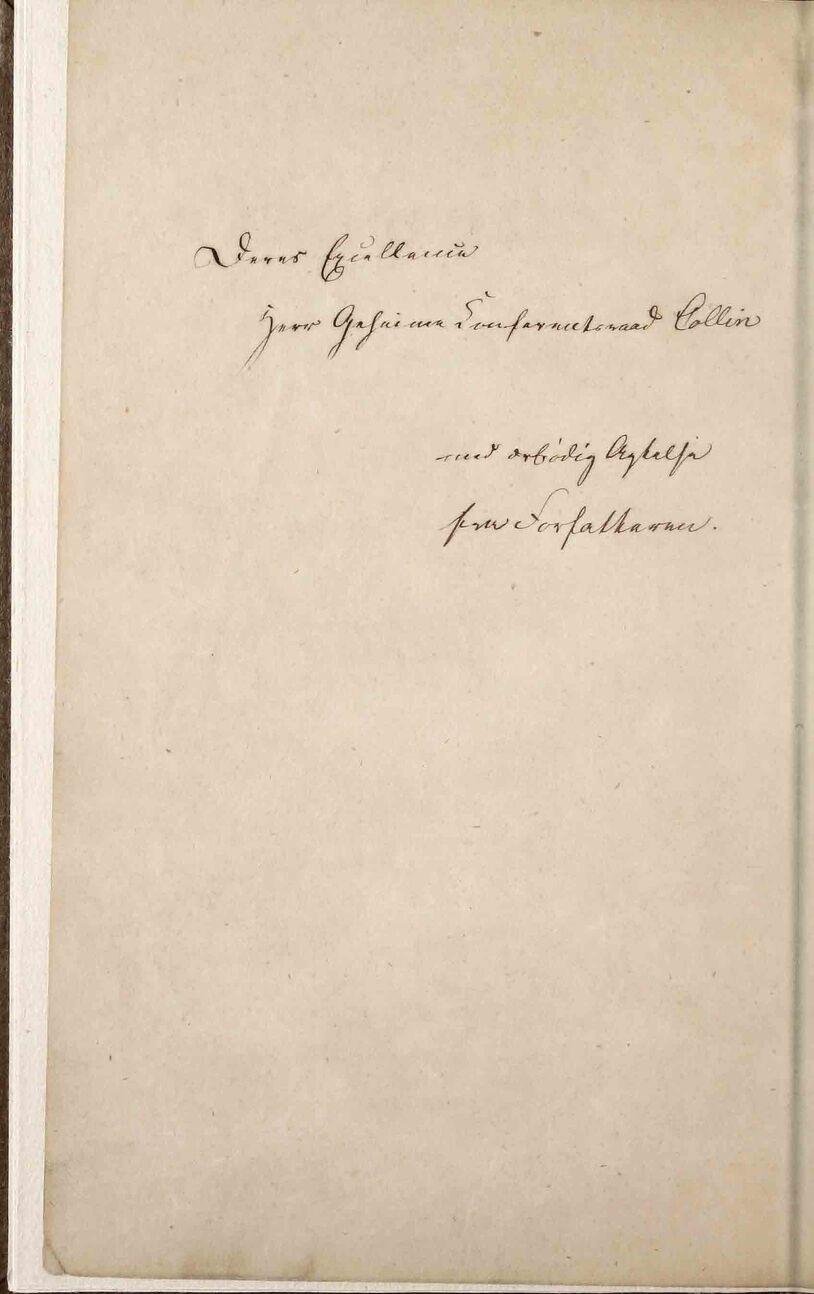 Deres Excellence
Herr Geheime Conferentsraad Collin
med ærbødig Agtelse
fra Forfatteren.